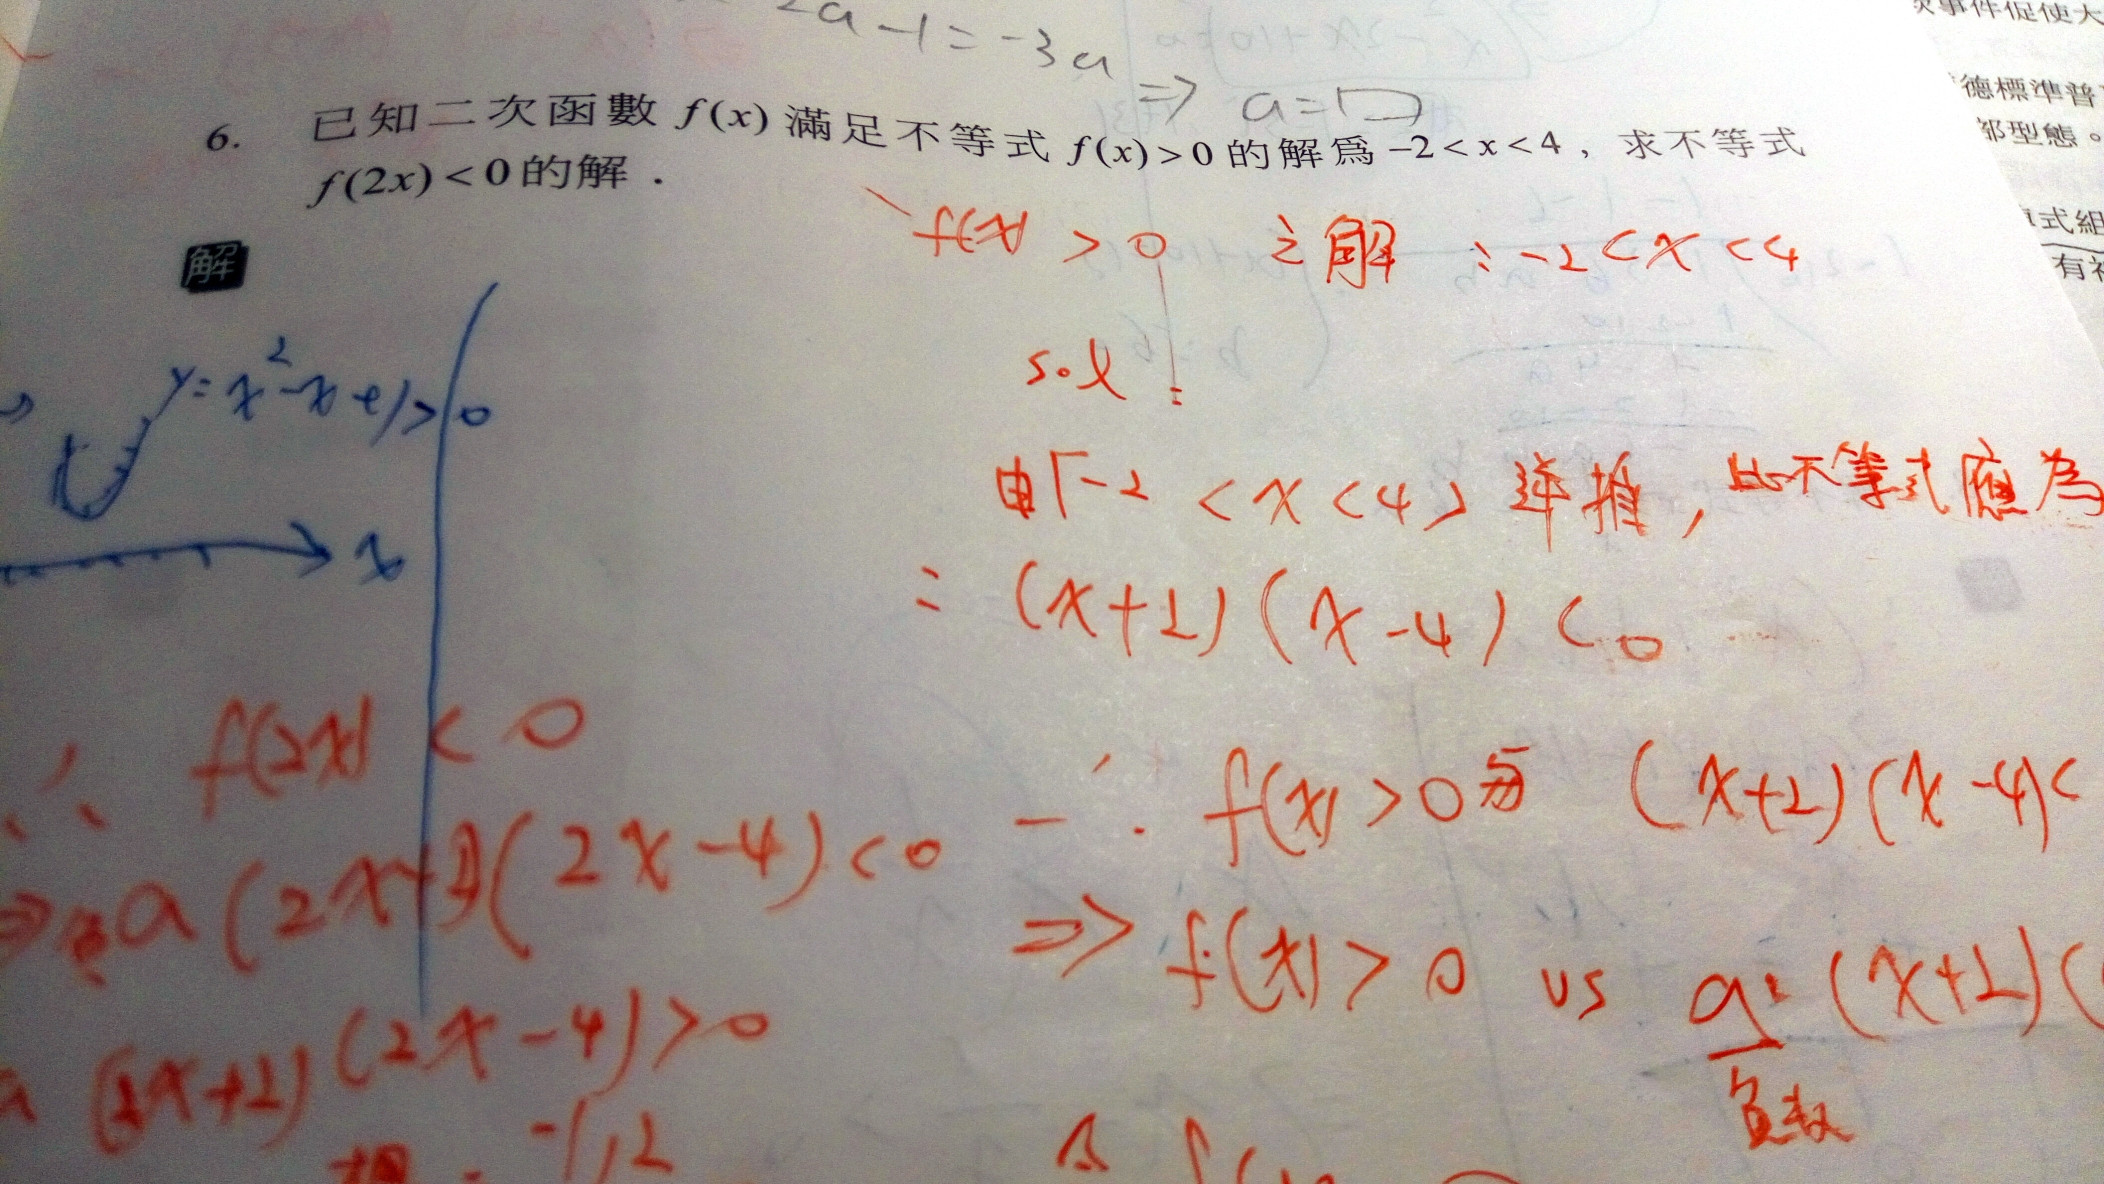 2a-1=-3a
⇒ a=
6. 已知二次函數 f(x) 滿足不等式 f(x)>0 的解爲 -2<x<4，求不等式
f(2x)<0 的解．
解
f(x) > 0 之解 : -2 < x < 4
sol :
由「-2 < x < 4」逆推, 此不等式應為
: (x+2)(x-4) < 0
y = x²-x+1 > 0
x
∴ f(x) > 0 為 (x+2)(x-4) <
⇒ f(x) > 0 vs a·(x+2)(
負数
∴ f(2x) < 0
⇒ a(2x+2)(2x-4) < 0
(2x+2)(2x-4) > 0
-1, 2
次事件促使大
德標準普
部型態。
式組
有